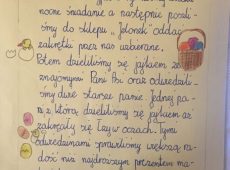 nocne śniadanie a następnie poszli-
śmy do sklepu „Jelonski" oddać
zakrętki przez nas uzbierane.
Potem dzieliliśmy się jajkiem ze
znajomymi Pani Psi oraz odwiedzili-
śmy dwie starsze panie. Jednej pa-
ni z którą dzieliliśmy się jajkiem aż
zakręciły się łzy w oczach. Tymi
odwiedzinami sprawiliśmy większą ra-
dość niż najdroższym prezentem ma-